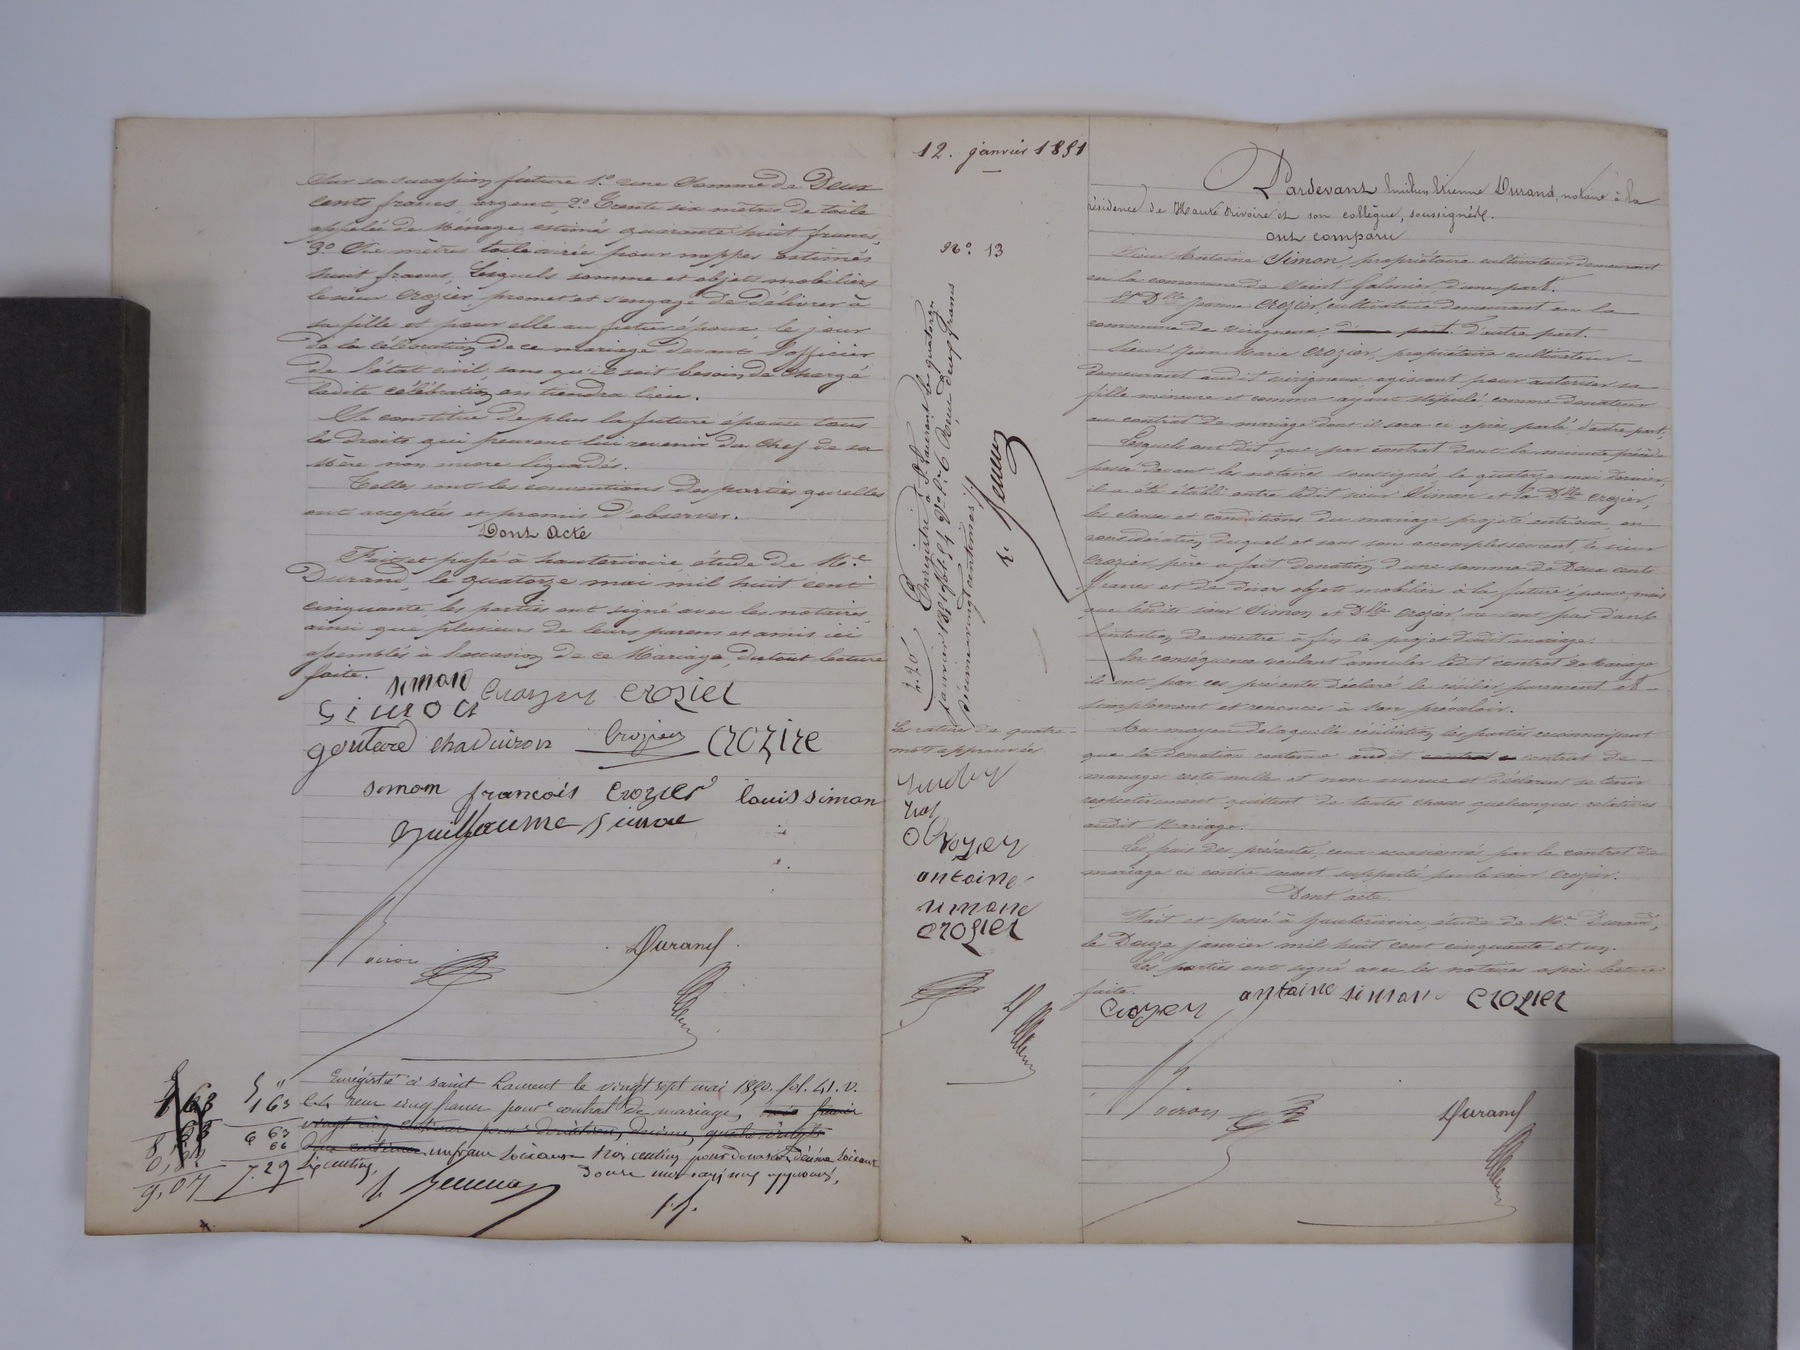 sur sa succession future 1o. une somme de Deux
cents francs argent, 2o. Trente six mètres de toile
appelée de Ménage, estimés quarante huit francs,
3o. Six mètres toile cirée pour nappes estimés
huit francs, Lesquels somme et objets mobiliers
le sieur Crozier, promet et s'engage de délivrer à
sa fille et pour elle au futur époux le jour
de la célébration de ce mariage devant l'officier
de l'état civil, sans qu'il soit besoin de charge
ladite célébration en tiendra lieu.
Il constitue de plus la future épouse tous
les droits qui peuvent lui revenir du chef de sa
Mère non encore liquidés.
Telles sont les conventions des parties qu'elles
ont acceptés et promis d'observer.
Dont Acte
Fait et passé à hauterivoire, étude de Me.
Durand, le quatorze mai mil huit cent
cinquante, les parties ont signé avec les notaires
ainsi que plusieurs de leurs parens et amis ici
assemblés à l'occasion de ce Mariage, du tout lecture
faite.
simon Crozier
simon
goutard chaduiron Crozier CROZIRE
simon françois Crozier louis simon
Guillaume
Durand
Enregistré à saint Laurent le vingt sept mai 1850. fol. 41. v.
reçu cinq francs pour contrat de mariage,
vingt cinq centimes pour donation, décime, quatre vingts
un franc soixante trois centimes pour donation, décime soixante
six centimes,
163
5 "
1 63
6 63
66
7.29
9,07
12. janvier 1851
No. 13
Enregistré à St Laurent le quatorze
janvier 1851 Reçu deux francs
décime vingt centimes
2.20
La rature de quatre
mots approuvés
antoine
simone
CROZIER
Pardevant Emilien Etienne Durand, notaire à la
résidence de Haute Rivoire et son collègue, soussignés.
ont comparu
Sieur Antoine Simon, propriétaire cultivateur demeurant
en la commune de Saint Galmier, d'une part.
Et Dlle. Jeanne Crozier, cultivatrice demeurant en la
commune de Virigneux, d'une part. d'autre part.
Sieur Jean Marie Crozier, propriétaire cultivateur
demeurant audit Virigneux, agissant pour autoriser sa
fille mineure et comme ayant stipulé comme donateur
au contrat de mariage dont il sera ci après parlé d'autre part,
Lesquels ont dit que par contrat dont la minute précède
passé devant les notaires soussignés le quatorze mai dernier,
il a été établi entre ledit sieur Simon et la Dlle Crozier,
les clauses et conditions du mariage projeté entr'eux, en
considération duquel et sous son accomplissement, le sieur
Crozier, père a fait donation d'une somme de Deux cents
francs et de divers objets mobiliers à la future épouse, mais
que lesdits sieur Simon et Dlle Crozier, ne sont pas dans
l'intention de mettre à fin le projet dudit mariage.
En conséquence voulant annuler ledit contrat de Mariage
ils ont par ces présentes déclaré le résilier purement et
simplement et renoncer à s'en prévaloir.
Au moyen de laquelle résiliation, les parties reconnaissent
que la Donation contenue audit contrat de
mariage reste nulle et non avenue et déclarent se tenir
respectivement quittent de toutes choses quelconques relatives
audit Mariage.
Les frais des présentes, ceux occasionnés par le contrat de
mariage ci contre seront supportés par le sieur Crozier.
Dont acte.
Fait et passé à hauterivoire, étude de Me. Durand,
le Douze janvier mil huit cent cinquante et un.
Les parties ont signé avec les notaires après lecture
faite.
antoine simon CROZIER
Durand